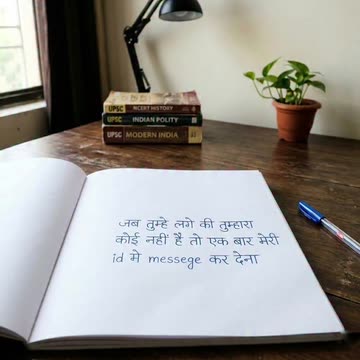 UPSC NCERT HISTORY
UPSC INDIAN POLITY
UPSC MODERN INDIA
जब तुम्हे लगे की तुम्हारा
कोई नहीं है तो एक बार मेरी
id मे messege कर देना